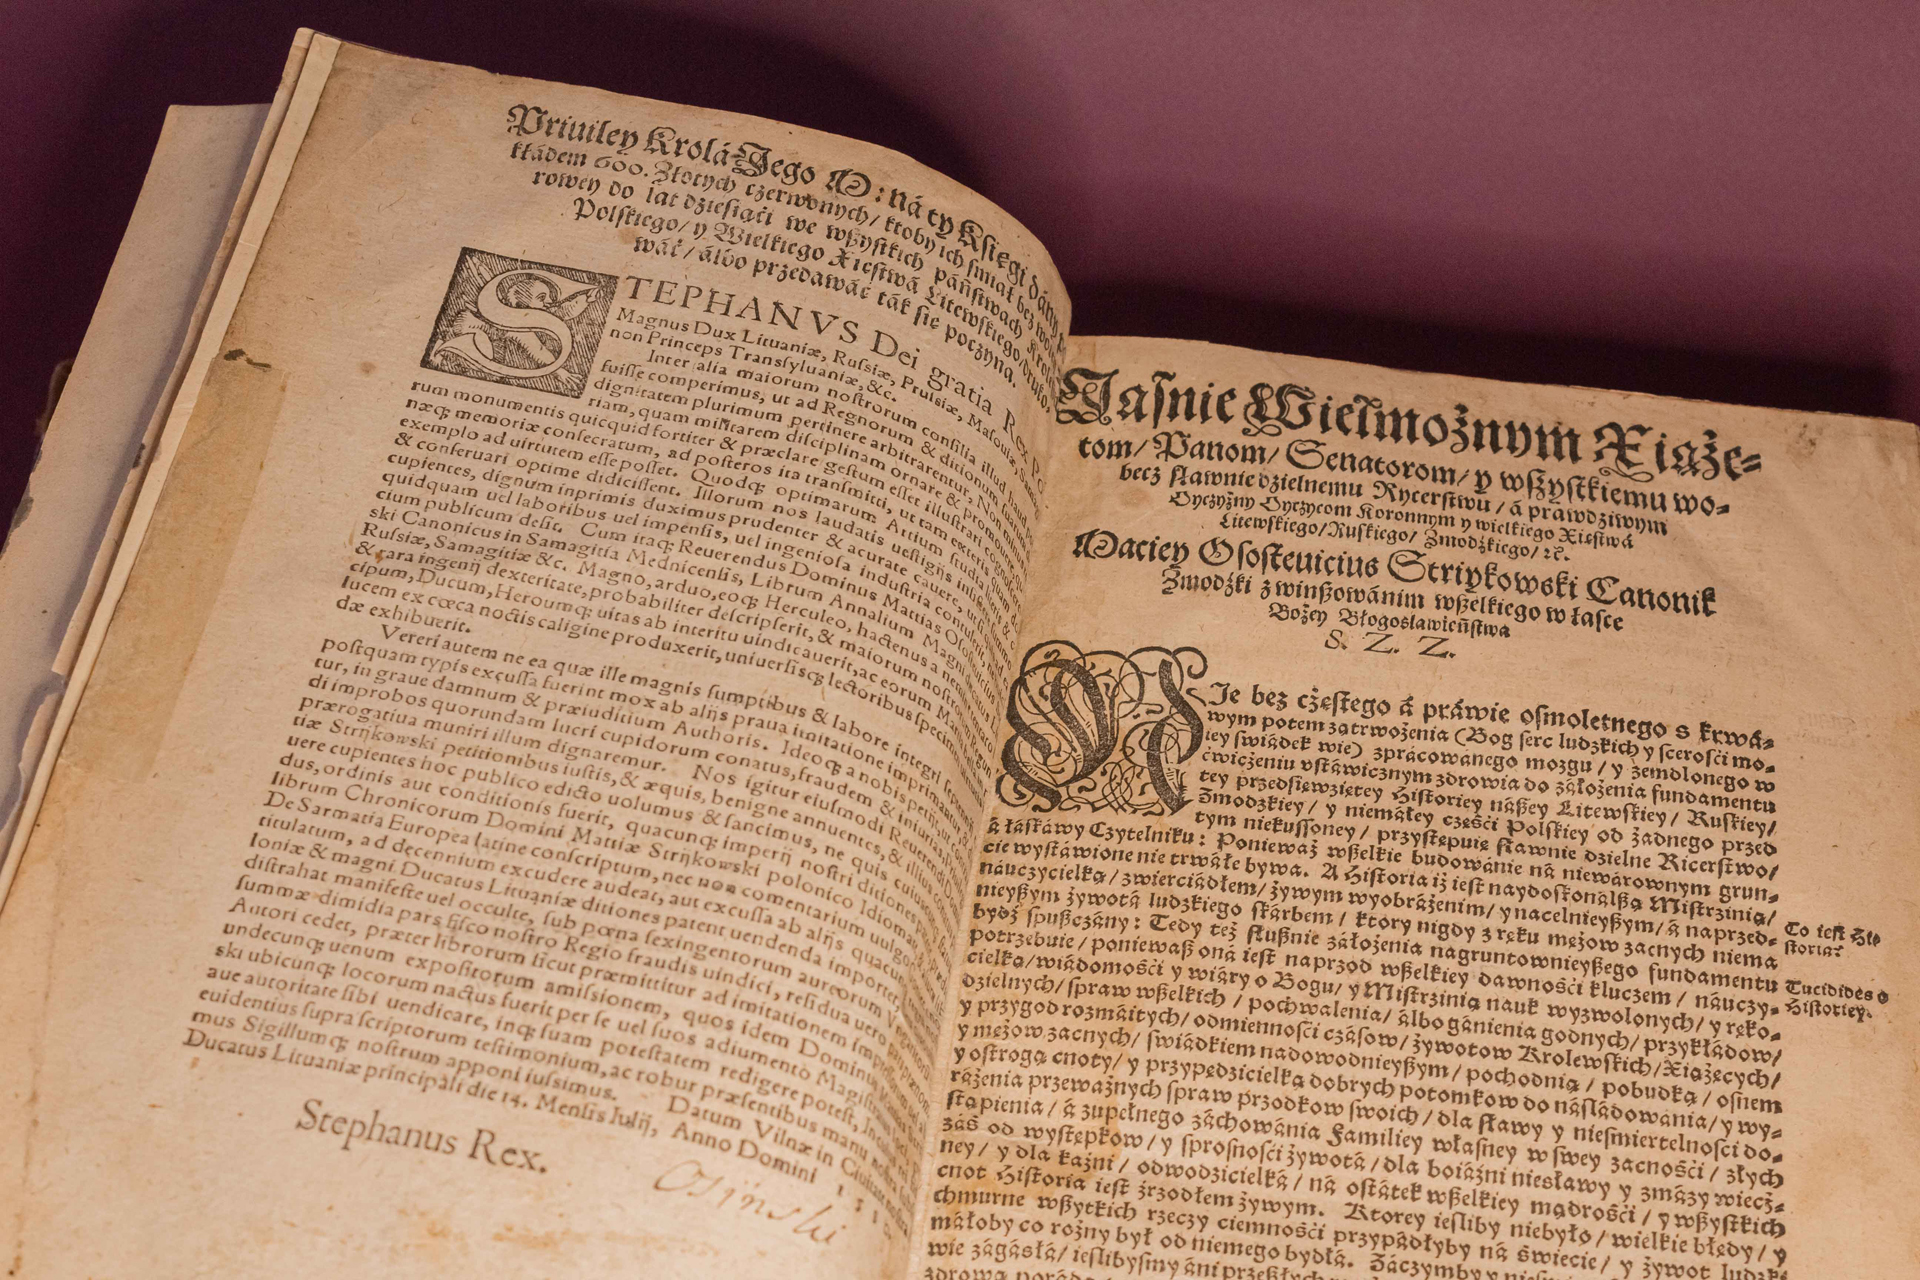 Priuiley Krolá Jego M: ná ty Księgi dány
kłádem 600. Złotych czerwonych/ ktoby ich smiał bez
rowey do lat dziesiąći we wßystkich páństwach
Polskiego/ y Wielkiego Xięstwá Litewskiego/ druko-
wáć/ álbo przedawáć ták się poczyna.
STEPHANVS Dei gratia Rex
Magnus Dux Lituaniæ, Russiæ, Prussiæ, Masouiæ,
non Princeps Transsyluaniæ, &c.
Inter alia maiorum nostrorum consilia illud
fuisse comperimus, ut ad Regnorum & ditionum
dignitatem plurimum pertinere arbitrarentur, Non
riam, quam militarem disciplinam ornare & promouere
rum monumentis quicquid fortiter & præclare gestum esset, illustrari
næq; memoriæ consecratum, ad posteros ita transmitti, ut tam exteris quam
exemplo ad uirtutem esse posset. Quodq; optimarum Artium studia
& conseruari optime didicissent. Illorum nos laudatis uestigijs
cupientes, dignum inprimis duximus prudenter & acurate cauere,
quidquam uel laboribus uel impensis, uel ingeniosa industria
cium publicum desit. Cum itaq; Reuerendus Dominus Mattias
ski Canonicus in Samagitia Mednicensis, Librum Annalium Magni
Russiæ, Samagitiæ &c. Magno, arduo, eoq; Herculeo, hactenus a
& rara ingenij dexteritate, probabiliter descripserit, & maiorum
cipum, Ducum, Heroumq; uitas ab interitu uindicauerit, ac eorum
lucem ex cœca noctis caligine produxerit, uniuersisq; lectoribus
dæ exhibuerit.
Vereri autem ne ea quæ ille magnis sumptibus & labore integri
postquam typis excussa fuerint mox ab alijs praua imitatione
tur, in graue damnum & præiuditium Authoris. Ideoq; a nobis
di improbos quorundam lucri cupidorum conatus, fraudem &
prærogatiua muniri illum dignaremur. Nos igitur eiusmodi
tiæ Strijkowski petitionibus iustis, & æquis, benigne annuentes,
uere cupientes hoc publico edicto uolumus & sancimus, ne quis
dus, ordinis aut conditionis fuerit, quacunq; imperij nostri
librum Chronicorum Domini Mattiæ Strijkowski polonico Idiomate
De Sarmatia Europea latine conscriptum, nec non comentarium
titulatum, ad decennium excudere audeat, aut excussa ab alijs
loniæ & magni Ducatus Lituaniæ ditiones patent uendenda
distrahat manifeste uel occulte, sub pœna sexingentorum aureorum
summæ dimidia pars fisco nostro Regio fraudis uindici, residua uero
Autori cedet, præter librorum sicut præmittitur ad imitationem
undecunq; uenum expositorum amissionem, quos idem Dominus
ski ubicunq; locorum nactus fuerit per se uel suos adiumento
aue autoritate sibi uendicare, inq; suam potestatem redigere potest,
euidentius supra scriptorum testimonium, ac robur præsentibus manu
mus Sigillumq; nostrum apponi iussimus. Datum Vilnæ in Ciuitate
Ducatus Lituaniæ principali die 14. Mensis Iulij, Anno Domini
Stephanus Rex.
Osijnski
Jásnie Wielmożnym Xiąże-
tom/ Pánom/ Senatorom/ y wßystkiemu wo-
becz sławnie dzielnemu Rycerstwu/ á prawdziwym
Oyczyzny Oyczycom Koronnym y wielkiego Xięstwá
Litewskiego/ Ruskiego/ Zmodzkiego/ ꝛc.
Maciey Ososteuicius Striykowski Canonik
Zmodzki z winßowánim wßelkiego w łasce
Bożey Błogosławieństwa
S. Z. Z.
NJe bez częstego á práwie osmoletnego s krwá-
wym potem zatrwożenia (Bog serc ludzkich y scerości mo-
iey świádek wie) zprácowanego mozgu/ y zemdlonego w
ćwiczeniu vstáwicznym zdrowia do záłożenia fundamentu
tey przedsięwziętey Historiey náßey Litewskiey/ Ruskiey/
Zmodzkiey/ y niemáłey części Polskiey od żadnego przed
tym niekussoney/ przystępuię sławnie dzielne Ricerstwo/
á łáskáwy Czytelniku: Ponieważ wßelkie budowánie ná niewárownym grun-
cie wystáwione nie trwáłe bywa. A Historia iż iest naydoskonálßą Mistrzinią/
náuczycielką/ zwierciádłem/ żywym wyobráżenim/ y nacelnieyßym/ á naprzed-
nieyßym żywotá ludzkiego skárbem/ ktory nigdy z ręku mężow zacnych niema
bydź spußczány: Tedy też słußnie záłożenia nagruntownieyßego fundamentu
potrzebuie/ ponieważ oná iest naprzod wßelkiey dawności kluczem/ náuczy-
cielką/ wiádomości y wiáry o Bogu/ y Mistrzinią nauk wyzwolonych/ y ręko-
dzielnych/ spraw wßelkich/ pochwalenia/ álbo gánienia godnych/ przykłádow/
y przygod rozmáitych/ odmienności czásow/ żywotow Krolewskich/ Xiążęcych/
y mężow zacnych/ świádkiem nadowodnieyßym/ pochodnią/ pobudką/ osnem
y ostrogą cnoty/ y przypędzicielką dobrych potomkow do náśládowánia/ y wy-
ráżenia przeważnych spraw przodkow swoich/ dla sławy y nieśmiertelności do-
stąpienia/ á zupełnego záchowánia Familiey własney w swey zacności/ złych
záś od występkow/ y sprosności żywotá/ dla boiáźni niesławy y zmázy wiecz-
ney/ y dla kaźni/ odwodzicielką/ ná ostátek wßelkiey mądrości/ y wßystkich
cnot Historia iest źrzodłem żywym. Ktorey iesliby niebyło/ wielkie błędy/ y
chmurne wßytkich rzeczy ciemności przypádłyby ná świecie/ y żywot ludzki
máłoby co rożny był od niemego bydłá. Záczymby y
wie zágásłá/ ieslibysmy áni przeßłych
To iest Hi-
storia:
Tucidides o
Historiey.